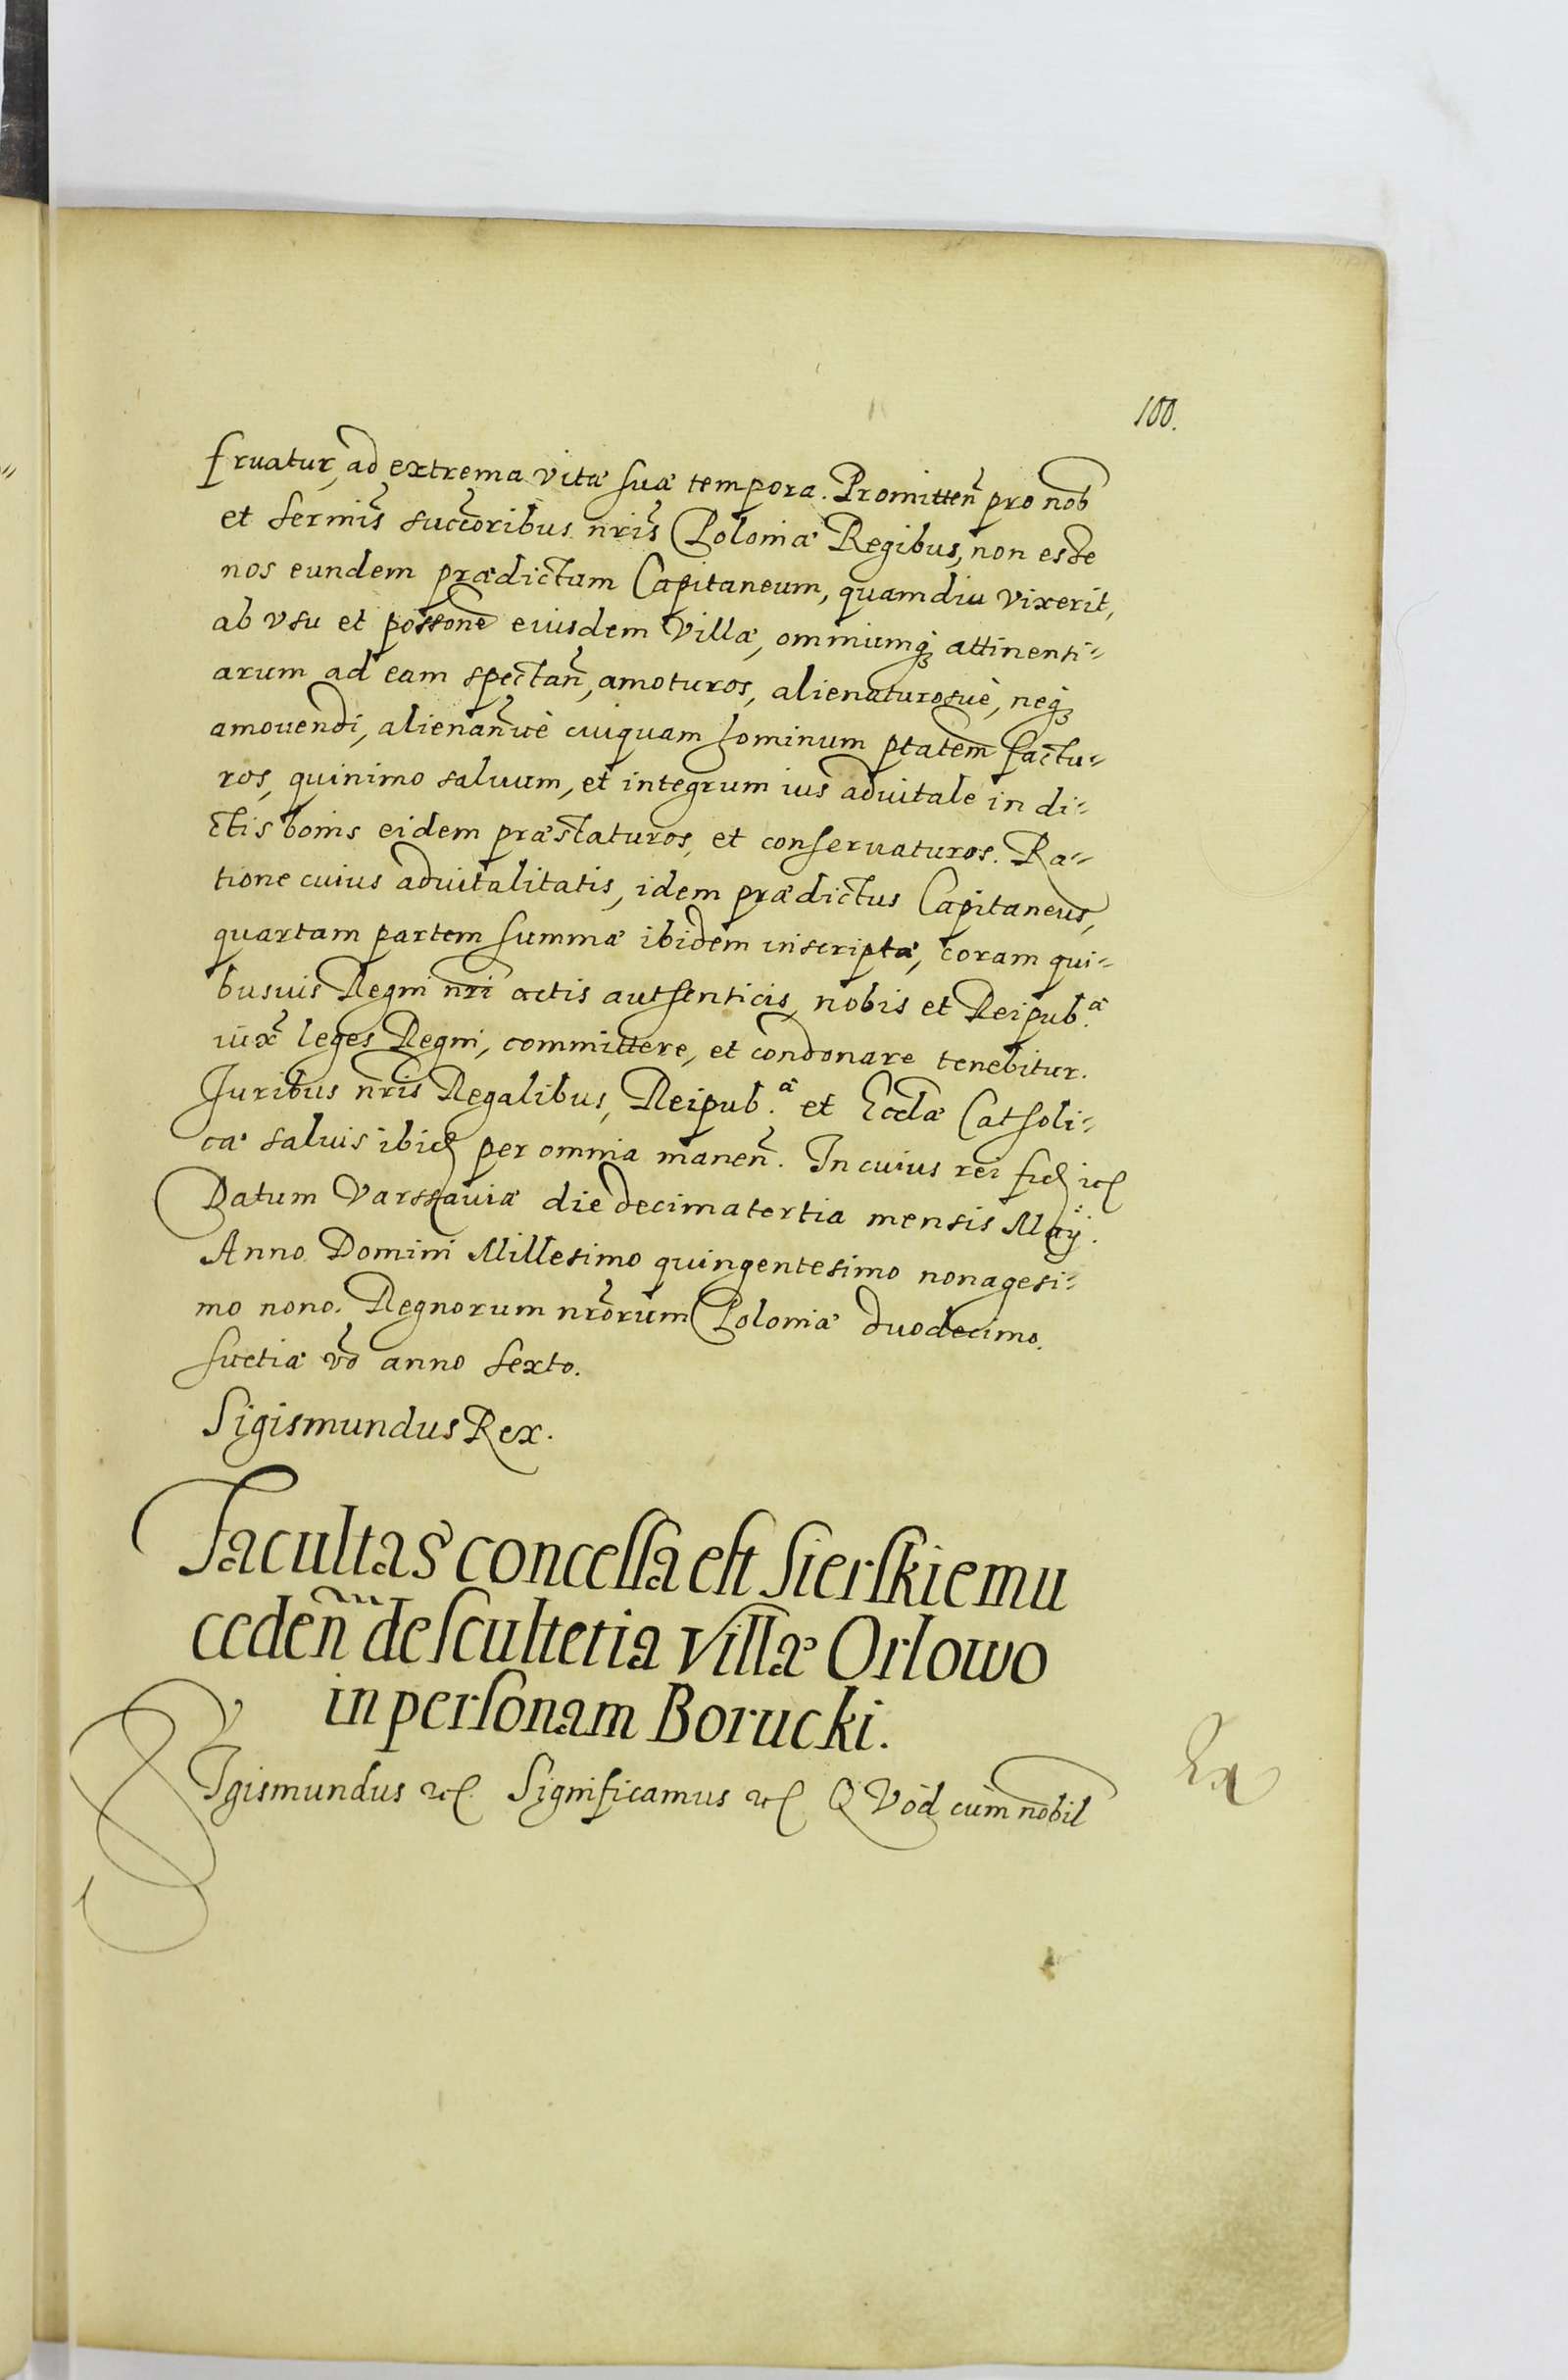 100.
fruatur, ad extrema vitæ suæ tempora. Promitteñ pro nob
et sermis succoribus nris Poloniæ Regibus, non esse
nos eundem prædictum Capitaneum, quamdiu vixerit,
ab vsu et possone eiusdem Villæ, omniumq attinenti=
arum ad eam spectañ, amoturos, alienaturosuè, neq
amouendi, alienañuè cuiquam hominum ptatem factu=
ros, quinimo saluum, et integrum ius aduitale in di=
ctis bonis eidem præstaturos, et conseruaturos. Ra=
tione cuius aduitalitatis, idem prædictus Capitaneus,
quartam partem summæ ibidem inscriptæ, coram qui=
busuis Regni nri actis authenticis, nobis et Reipub.ᵃ
iux leges Regni, committere, et condonare tenebitur.
Juribus nris Regalibus, Reipub.ᵃ et Ecclæ Catholi=
cæ saluis ibid per omnia maneñ. In cuius rei fid etc
Datum Varssauiæ die decimatertia mensis Maÿ.
Anno Domini Millesimo quingentesimo nonagesi=
mo nono. Regnorum nrorum Poloniæ duodecimo.
Suetiæ vo anno sexto.
Sigismundus Rex.
Facultas concessa est Sierskiemu
cedeñ de scultetia villæ Orlowo
in personam Borucki.
SIgismundus etc. Significamus etc QVod cum nobil
Ex